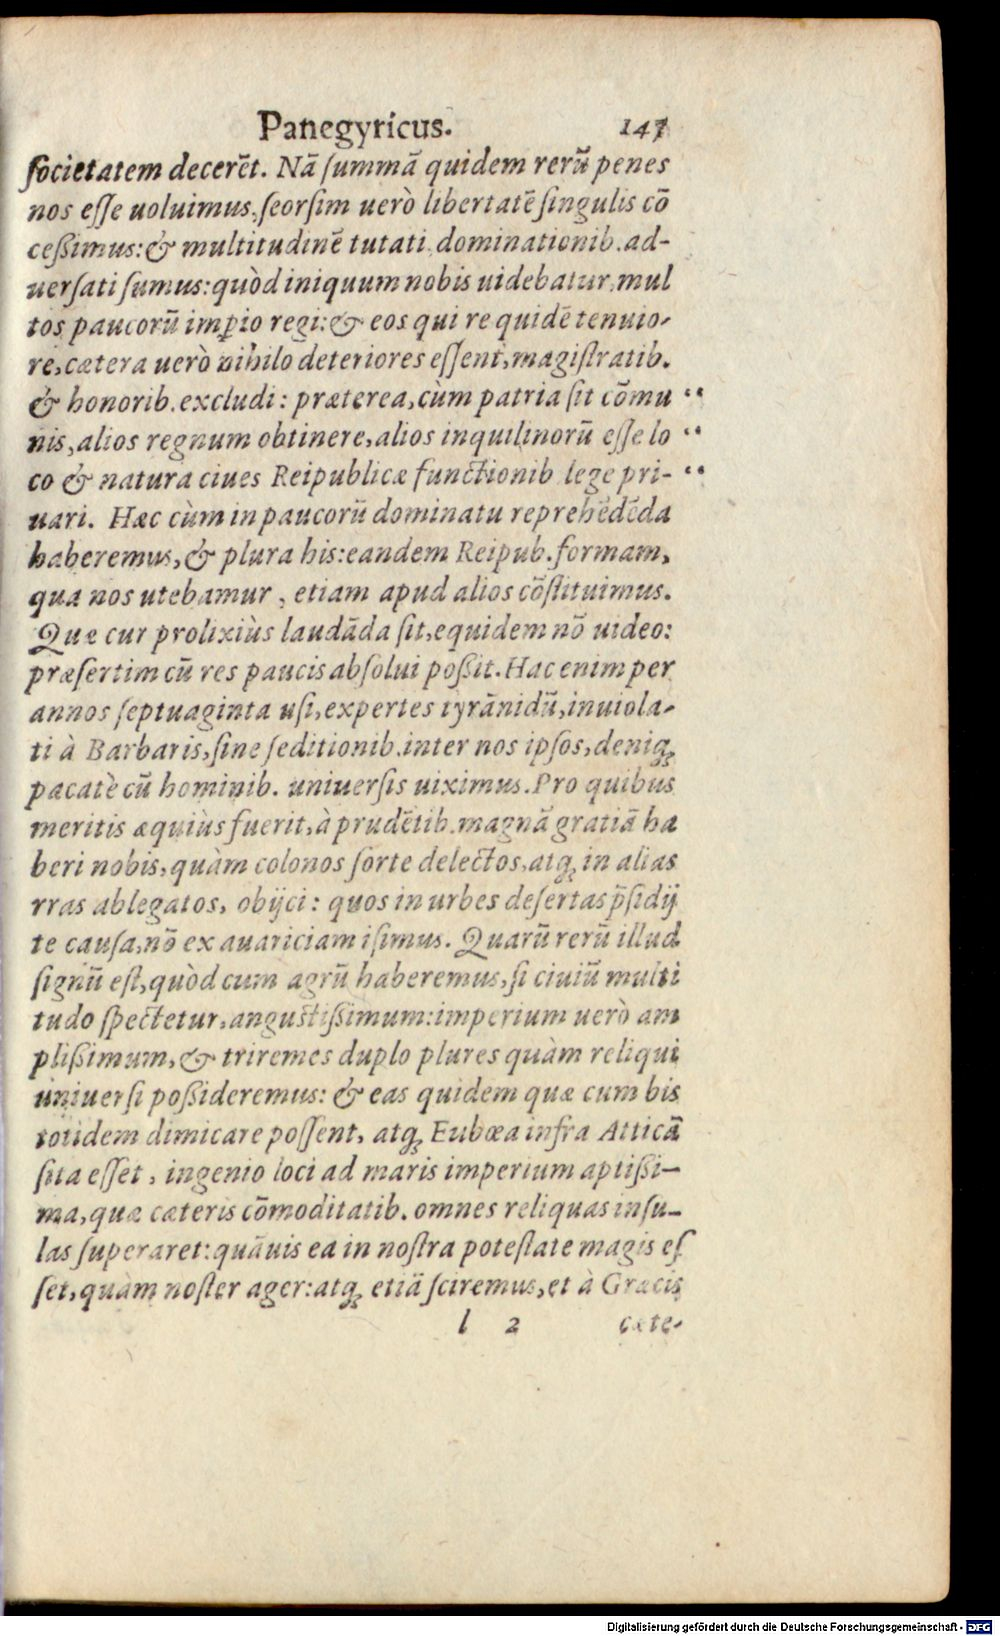 Panegyricus. 147
ſocietatem decerēt. Nā ſummā quidem rerū penes
nos eſſe uoluimus, ſeorſim uerò libertatē ſingulis cō
ceßimus: & multitudinē tutati dominationib. ad-
uerſati ſumus: quòd iniquum nobis uidebatur, mul
tos paucorū imꝑio regi: & eos qui re quidē tenuio-
re, cætera uerò nihilo deteriores eſſent, magiſtratib.
& honorib. excludi: præterea, cùm patria ſit cōmu “
nis, alios regnum obtinere, alios inquilinorū eſſe lo “
co & natura ciues Reipublicæ functionib lege pri- “
uari. Hæc cùm in paucorū dominatu reprehēdēda
haberemus, & plura his: eandem Reipub. formam,
qua nos utebamur, etiam apud alios cōſtituimus.
Quæ cur prolixiùs laudāda ſit, equidem nō uideo:
præſertim cū res paucis abſolui poßit. Hac enim per
annos ſeptuaginta uſi, expertes tyrānidū, inuiola-
ti à Barbaris, ſine ſeditionib. inter nos ipſos, deniqꝫ
pacatè cū hominib. uniuerſis uiximus. Pro quibus
meritis æquiùs fuerit, à prudētib. magnā gratiā ha
beri nobis, quàm colonos ſorte delectos, atqꝫ in alias
rras ablegatos, obijci: quos in urbes deſertas p̄ſidij
te cauſa, nō ex auariciam iſimus. Quarū rerū illud
ſignū eſt, quòd cum agrū haberemus, ſi ciuiū multi
tudo ſpectetur, anguſtißimum: imperium uerò am
plißimum, & triremes duplo plures quàm reliqui
uniuerſi poßideremus: & eas quidem quæ cum bis
totidem dimicare poſſent, atqꝫ Eubœa infra Atticā
ſita eſſet, ingenio loci ad maris imperium aptißi-
ma, quæ cæteris cōmoditatib. omnes reliquas inſu-
las ſuperaret: quāuis ea in noſtra poteſtate magis eſ
ſet, quàm noſter ager: atqꝫ etiā ſciremus, et à Græcis
l 2 cæte-
Digitalisierung gefördert durch die Deutsche Forschungsgemeinschaft - DFG